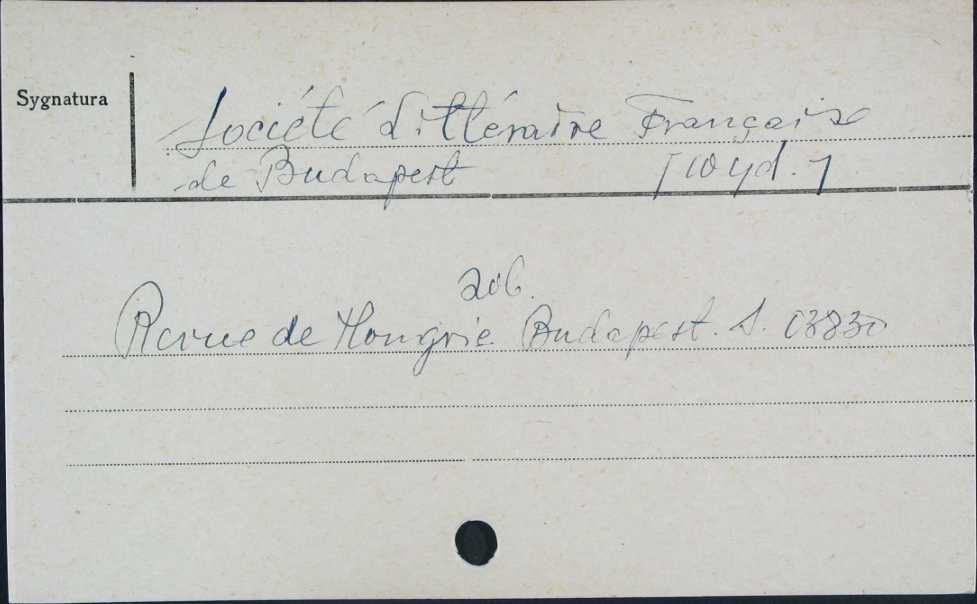 Sygnatura
Société Littéraire Française
de Budapest [wyd.]
zob.
Revue de Hongrie. Budapest. S. 03830